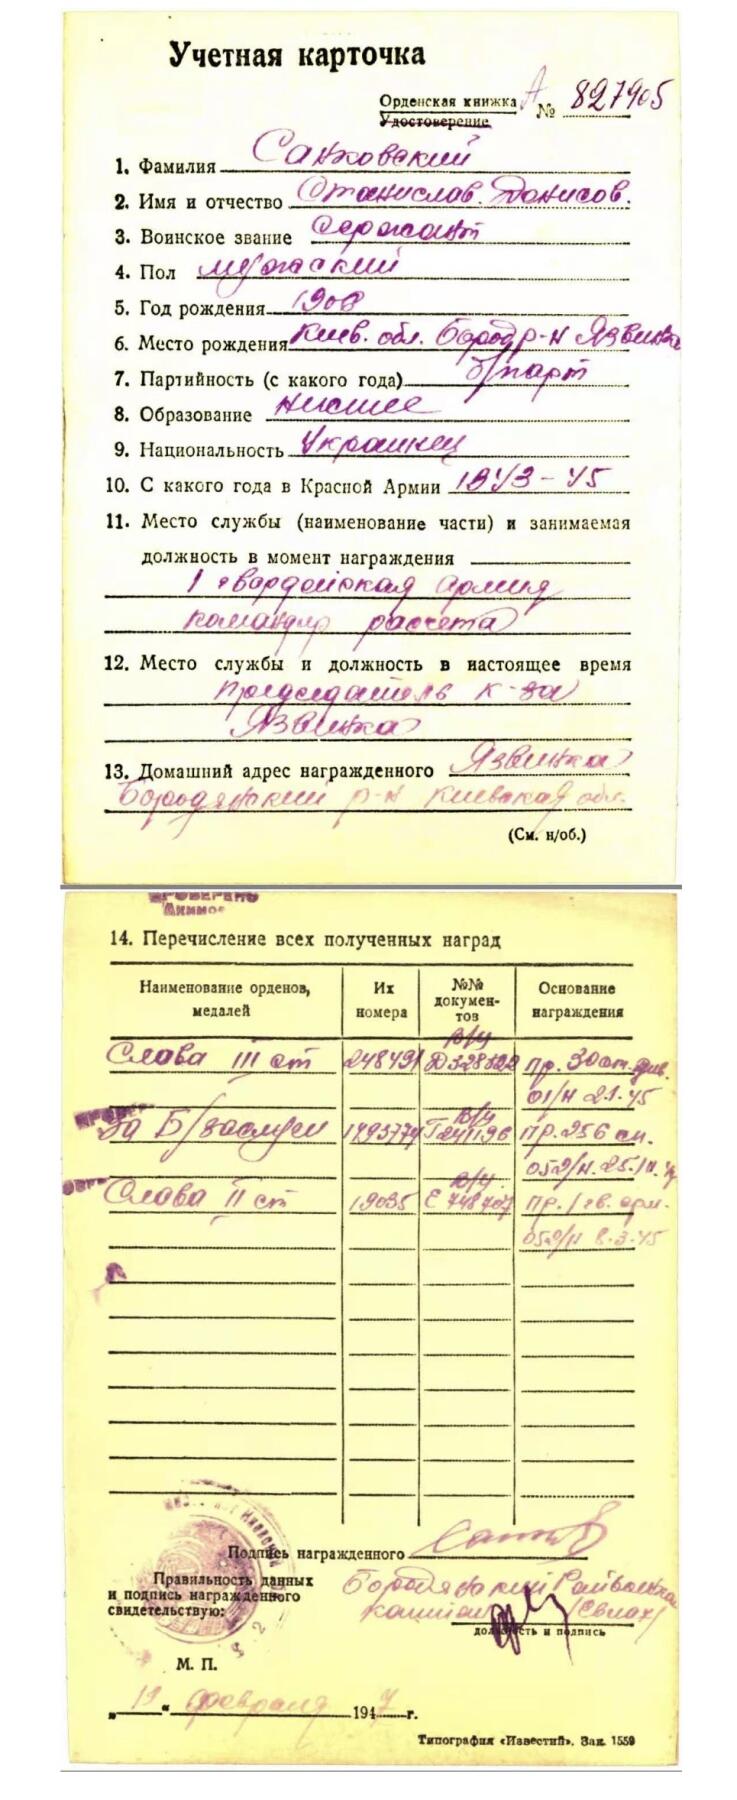 Учетная карточка
Орденская книжка А № 827905
Удостоверение
1. Фамилия Санковский
2. Имя и отчество Станислав. Донисов.
3. Воинское звание Сержант
4. Пол мужской
5. Год рождения 1908
6. Место рождения Киев. обл. Бород р-н Язвинка
7. Партийность (с какого года) б/парт
8. Образование низшее
9. Национальность Украинец
10. С какого года в Красной Армии 1943-45
11. Место службы (наименование части) и занимаемая
должность в момент награждения
1 гвардейская армия
командир расчета
12. Место службы и должность в настоящее время
председатель к-за
Язвинка
13. Домашний адрес награжденного Язвинка
Бородянский р-н Киевская обл.
(См. н/об.)
ПРОВЕРЕНО
14. Перечисление всех полученных наград
Наименование орденов, медалей Их номера №№ документов Основание награждения
Слава III ст 248491 Д 328522 пр. 30 ст. див.
01/н 21.45
За Б/заслуги 1493774 Г 241196 пр. 256 сп.
052/н. 25.
Слава II ст 19035 Е 748707 пр. 1 гв. арм.
052/н 8.3.45
Подпись награжденного
Правильность данных
и подпись награжденного
свидетельствую:
Бородянский Райвоенком
капитан
должность и подпись
М. П.
„19“ февраля 1947 г.
Типография «Известий». Зак. 1559